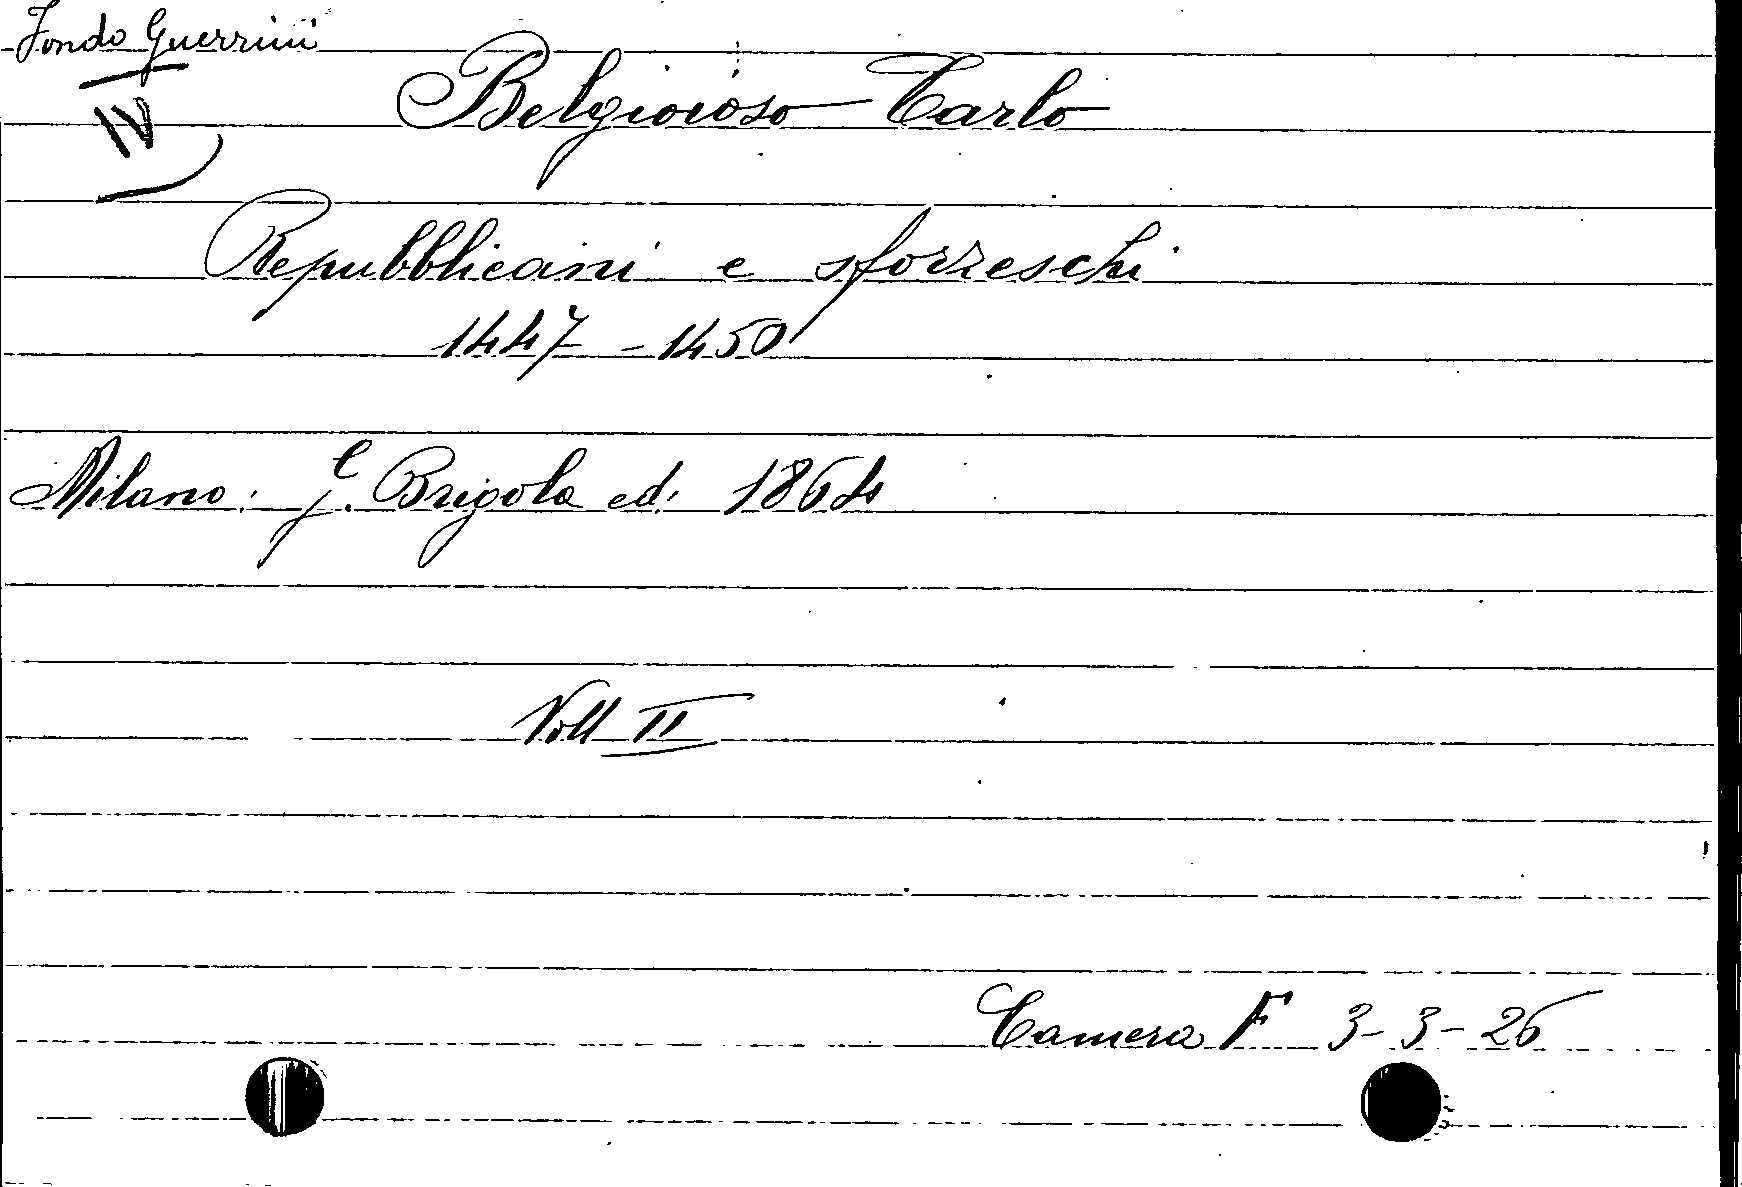 Fondo Guerrini
IV
Belgioioso Carlo
Repubblicani e sforzeschi
1447 - 1450
Milano: Brigola ed. 1864
Voll II
Camera F 3-3-26